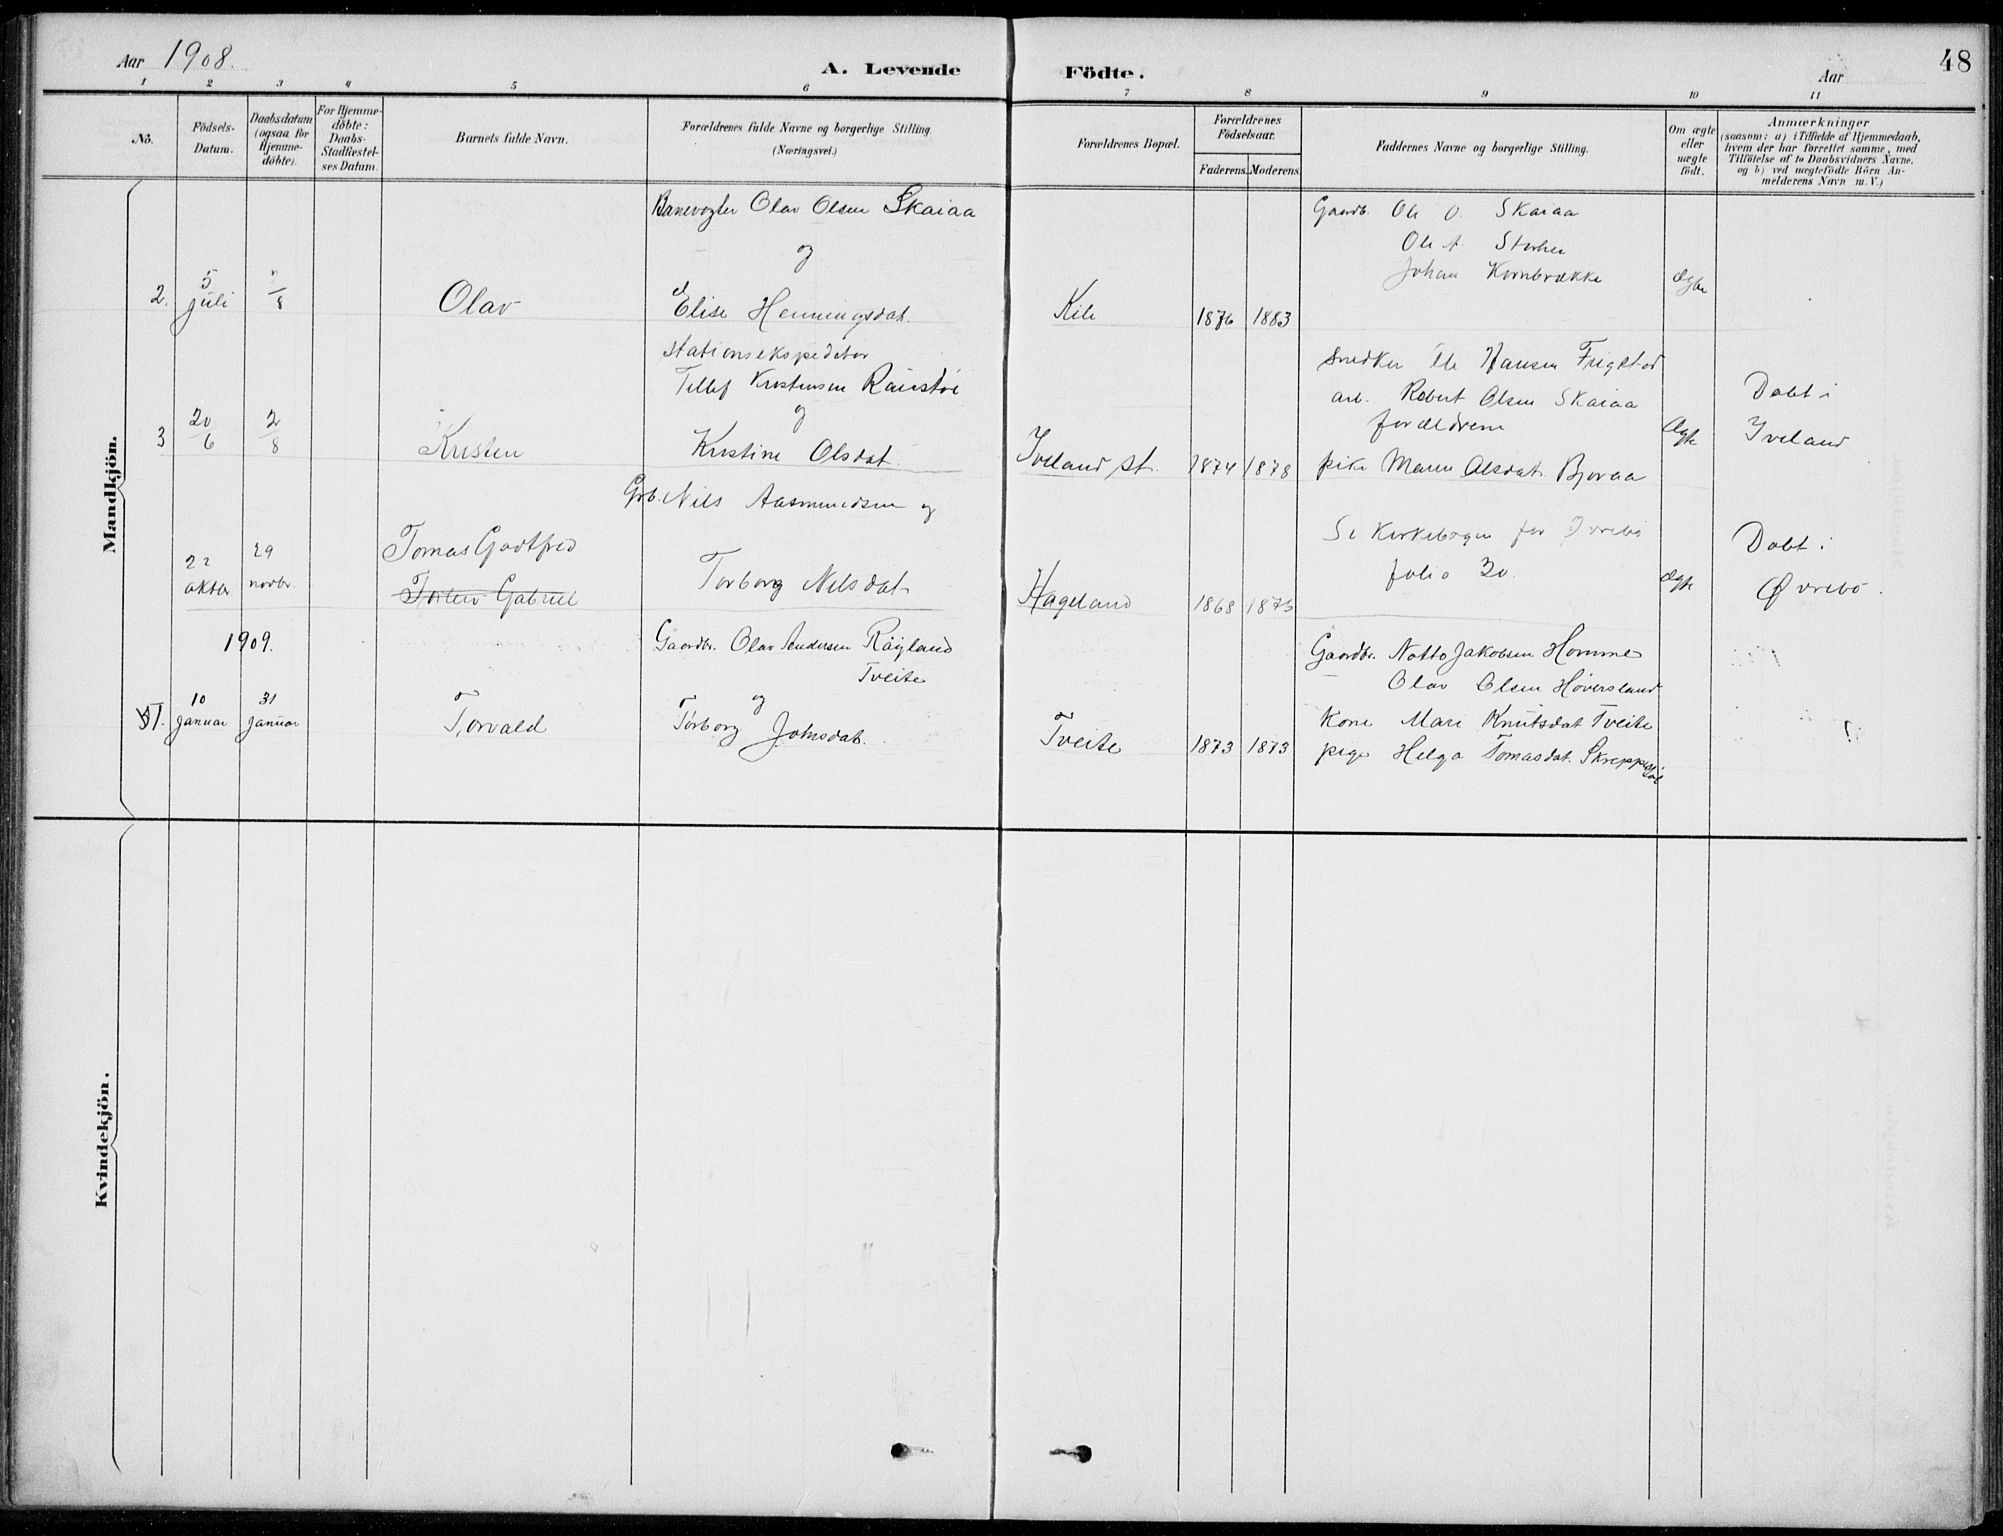 Aar 1908.
A. Levende Födte.
Aar
48
1 2 3 4 5 6 7 8 9 10 11
No.
Födsels-
Datum.
Daabsdatum
(ogsaa for
Hjemme-
döbte).
For Hjemme-
döbte:
Daabs-
Stadfæstel-
ses Datum.
Barnets fulde Navn.
Forældrenes fulde Navne og borgerlige Stilling.
(Næringsvei.)
Forældrenes Bopæl.
Forældrenes
Födselsaar.
Faderens. Moderens.
Faddernes Navne og borgerlige Stilling.
Om ægte
eller
uægte
födt.
Anmærkninger
(saasom: a) i Tilfælde af Hjemmedaab,
hvem der har forrettet samme, med
Tilföielse af to Daabsvidners Navne.
og b) ved uægtefödte Börn An-
melderens Navn m. V.)
Mandkjön.
2.
5
juli
8
Olav
Banevogter Olav Olsen Skaiaa
og
Elise Henningsdat.
Kile
1876 1883
Gaardb. Ole O. Skaiaa
Ole A.
Johan Kornbrække
Ægte
3
20
6
2
8
Kristen
Stationsekspeditør
Tellef Kristensen
og
Kristine Olsdat.
Iveland st.
1874 1878
Snedker Ole Hansen Frigstad
arb. Robert Olsen Skaiaa
forældrene
pike Maren Olsdat. Bjoraa
Ægte
Døbt i
Iveland
22
oktbr.
29
novbr.
Tomas Godtfred
Gabriel
Grb. Nils Aasmundsen og
Torborg Nilsdat.
Hageland
1868 1875
Se Kirkebogen for Øvrebø
folio 30.
Ægte
Døbt i
Øvrebø.
1909.
1.
10
Januar
31
Januar
Torvald
Gaardbr. Olav Andersen Røyland
Tveite
og
Torborg Johnsdat.
Tveite
1873 1873
Gaardbr. Notto Jakobsen Homme
Olav Olsen Høversland
Kone Mari Knutsdat Tveite
pige Helga Tomasdat. Skreppestøl
Kvindekjön.